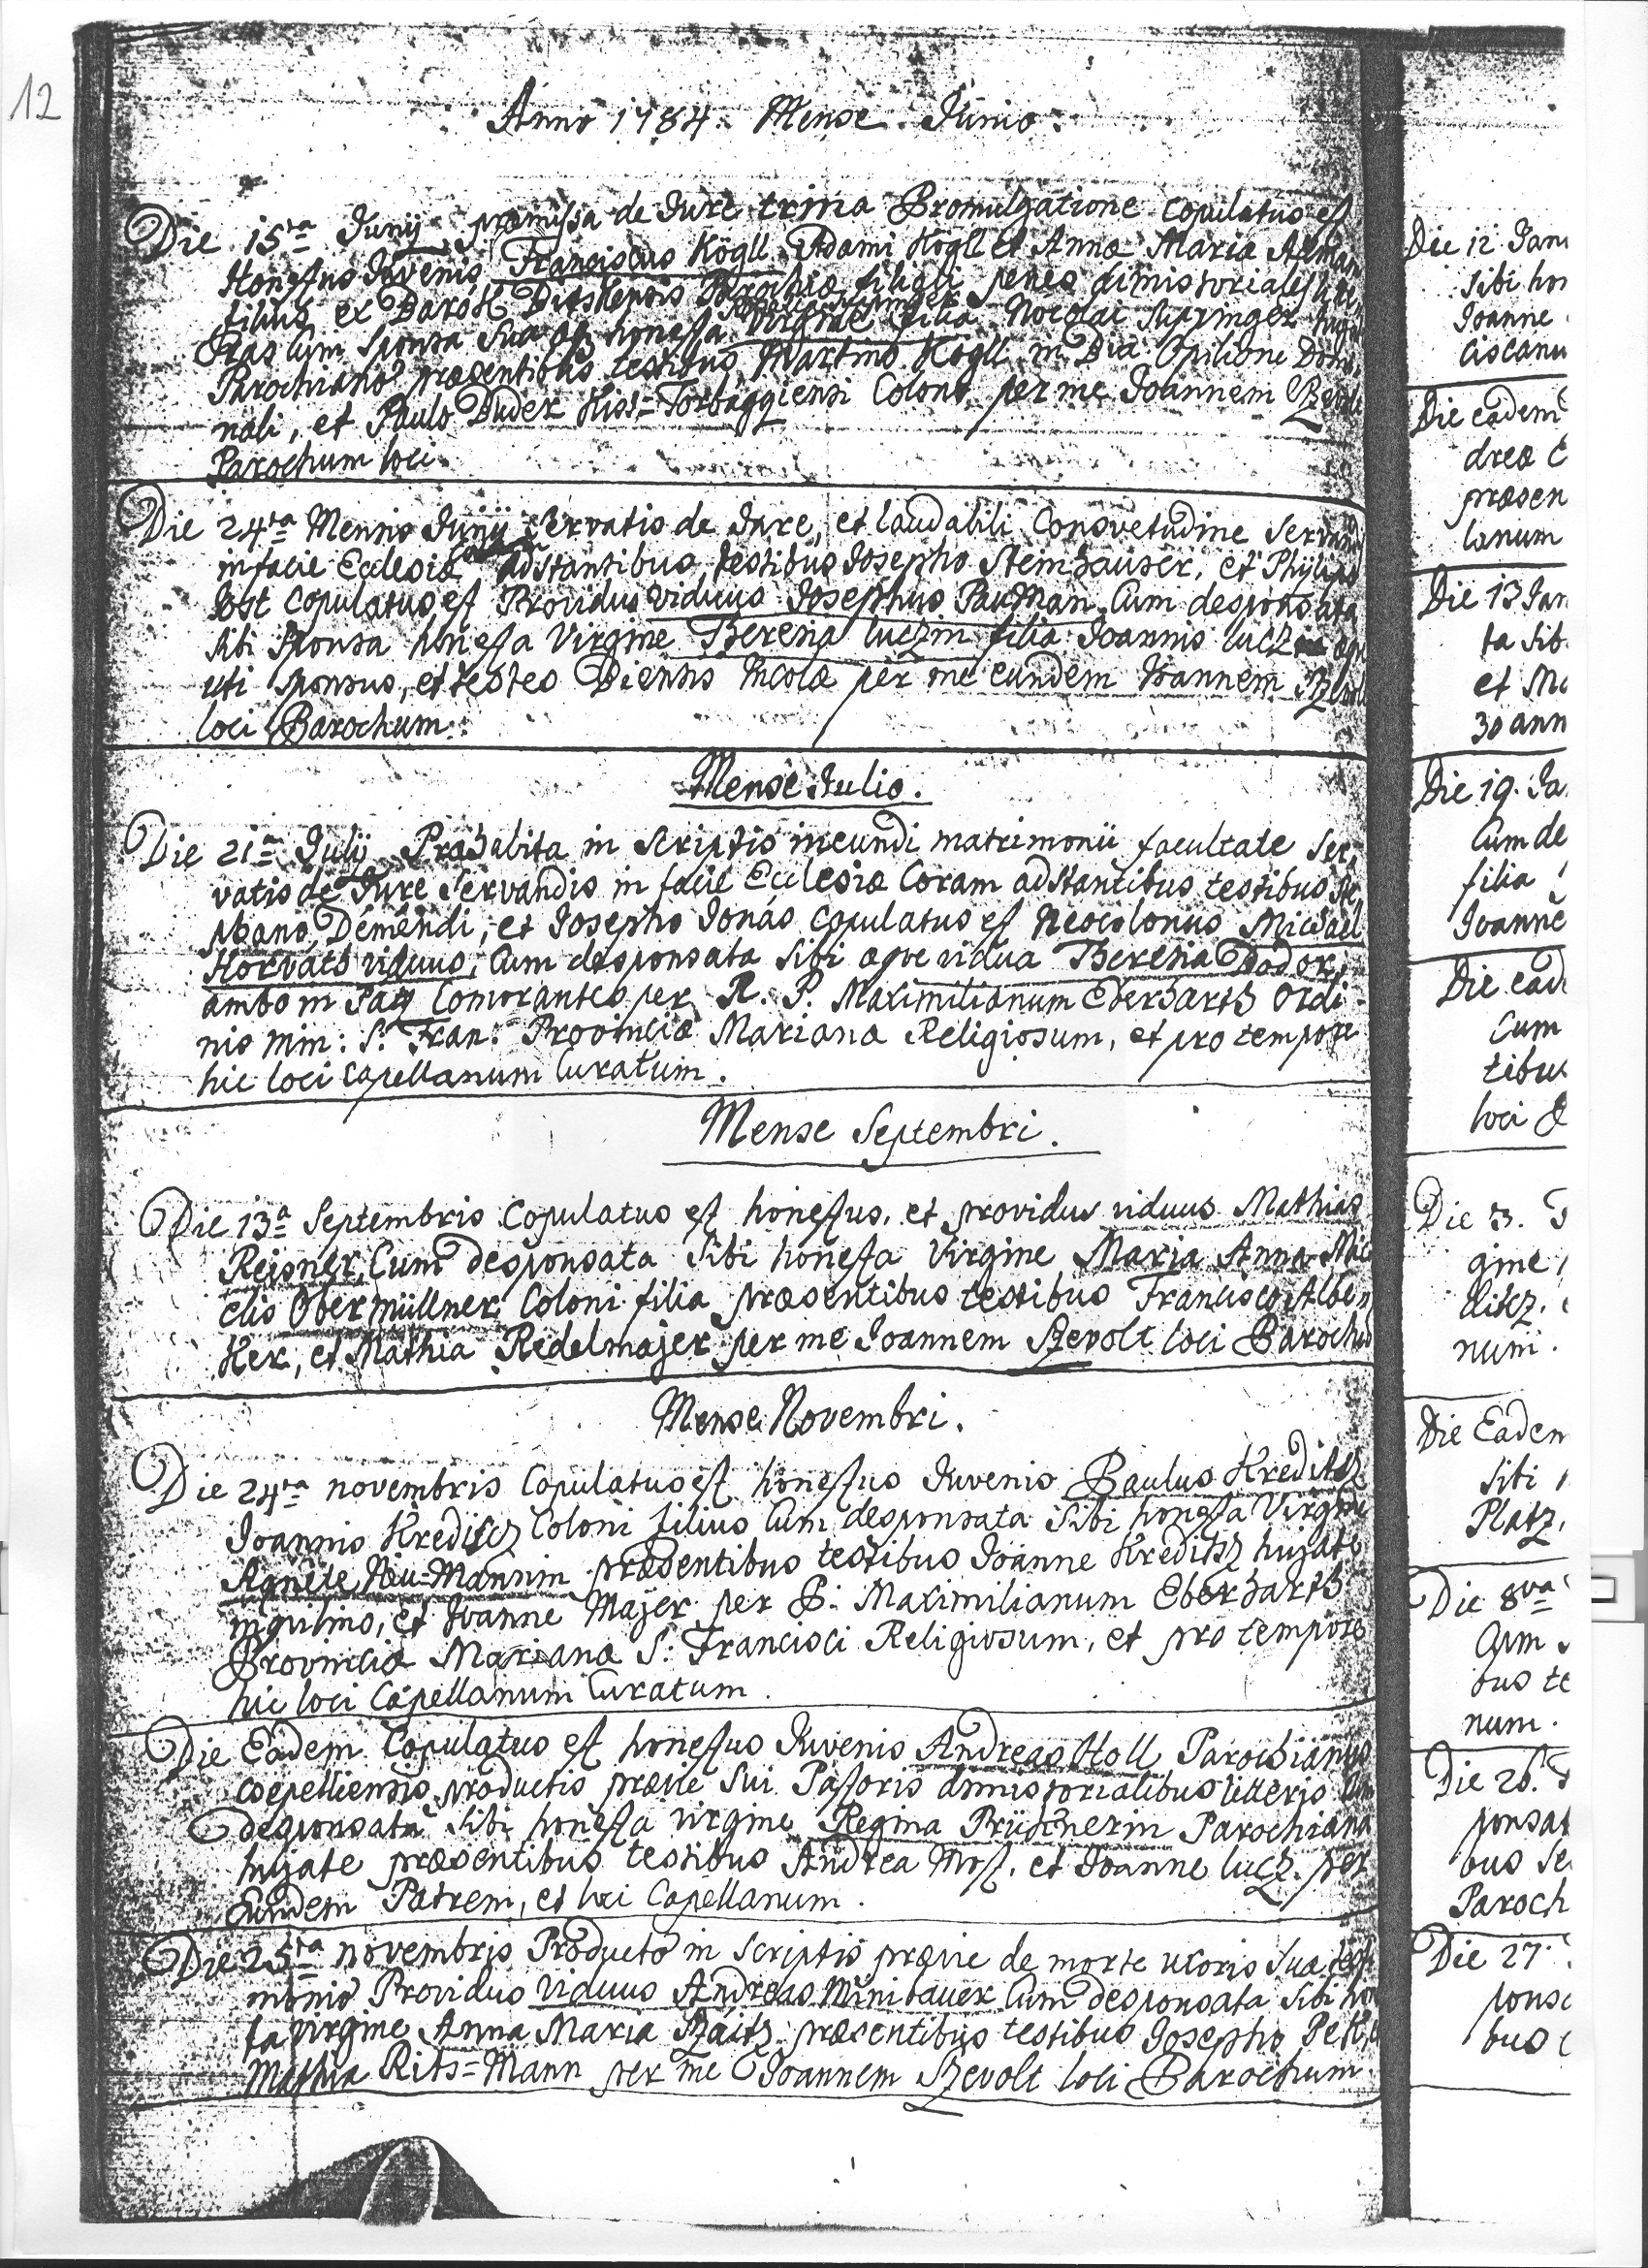 12
Anno 1784. Mense Junio.
Die 15ta Junij præmissa de Jure trina Promulgatione Copulatus est
Honestus Juvenis Franciscus Kögll Adami Kögll et Annæ Maria
filius ex Parochiæ filiali penes dimissoriales
Cum Sponsa Sua honesta Virgine filia Nicolai
Parochiano præsentibus testibus Martino Kögll
nali, et Paulo Duder Kiss=Torbággiensi Colono, per me Joannem
Parochum loci
Die 24ta Mensis Junij Servatis de Jure, et laudabili Consvetudine
in facie Ecclesiæ adstantibus testibus Josepho Steinhauser, et
Jost Copulatus est Providus viduus Josephus PauMan Cum desponsata
sibi Sponsa honesta Virgine Therena luczin filia Joannis lucz
uti Sponsus, et testes Biensis Incolæ per me eundem Joannem
loci Parochum.
Mense Julio.
Die 21a Julij Præhabita in Scriptis ineundi matrimonii facultate Ser-
vatis de Jure Servandis in facie Ecclesiæ Coram adstantibus testibus
phano Démêndi, et Josepho Jonás copulatus est Neocolonus Michael
Horvath viduus, Cum desponsata sibi aque vidua Therena Dador,
ambo in Paty Comorantes per R. P. Maximilianum Eberharth Ordi-
nis Min: S: Fran: Provinciæ Marianæ Religiosum, et pro tempore
hic loci Capellanum Curatum.
Mense Septembri.
Die 13a Septembris Copulatus est honestus, et providus viduus Mathias
Reisner, Cum desponsata Sibi honesta Virgine Maria Anna
elis Obermüllner Coloni filia præsentibus testibus Francisco
Ker, et Mathia Redelmajer per me Joannem Szevolt loci
Mense Novembri.
Die 24ta novembris Copulatus est honestus Juvenis Paulus Kreditsz
Joannis Kreditsz Coloni filius Cum desponsata Sibi honesta Virgine
Agnete Neu=Mannin præsentibus testibus Joanne Kreditsz hujate
inquilino, et Joanne Majer per P: Maximilianum Eberharth
Provinciæ Marianæ S: Francisci Religiosum, et pro tempore
hic loci Capellanum Curatum.
Die Eadem Copulatus est honestus Juvenis Andreas Holl Parochianus
csepelliensis productis prævie Sui Pastoris dimissorialibus litteris
desponsata Sibi honesta virgine Regina Prüchnerin Parochiana
hujate præsentibus testibus Andrea Most, et Joanne lucz. per
Eundem Patrem, et loci Capellanum.
Die 25ta novembris Producto in Scriptis prævie de morte uxoris Suæ
monio Providus viduus Andreas Minibauer Cum desponsata Sibi
ta virgine Anna Maria præsentibus testibus Josepho
Mathia Rits=Mann per me Joannem Szevolt loci Parochum.
Die 12 Janu
Sibi hon
Joanne
ciscanu
Die eadem
dreæ
præsen
lanum
Die 13 Jan
ta Sib
et
30 ann
Die 19. Ja
Cum de
filia
Joanne
Die ead
Cum
tibus
loci
Die 3.
gine
num.
Die Eadem
Sibi
Platz,
Die 8va
Cum
bus te
num.
Die 26.
ponsat
bus Se
Paroch
Die 27.
ponsa
bus